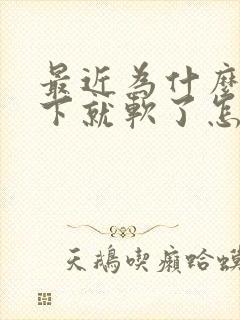 最近為什麼
下就軟了怎
天鵝喫癩蛤蟆